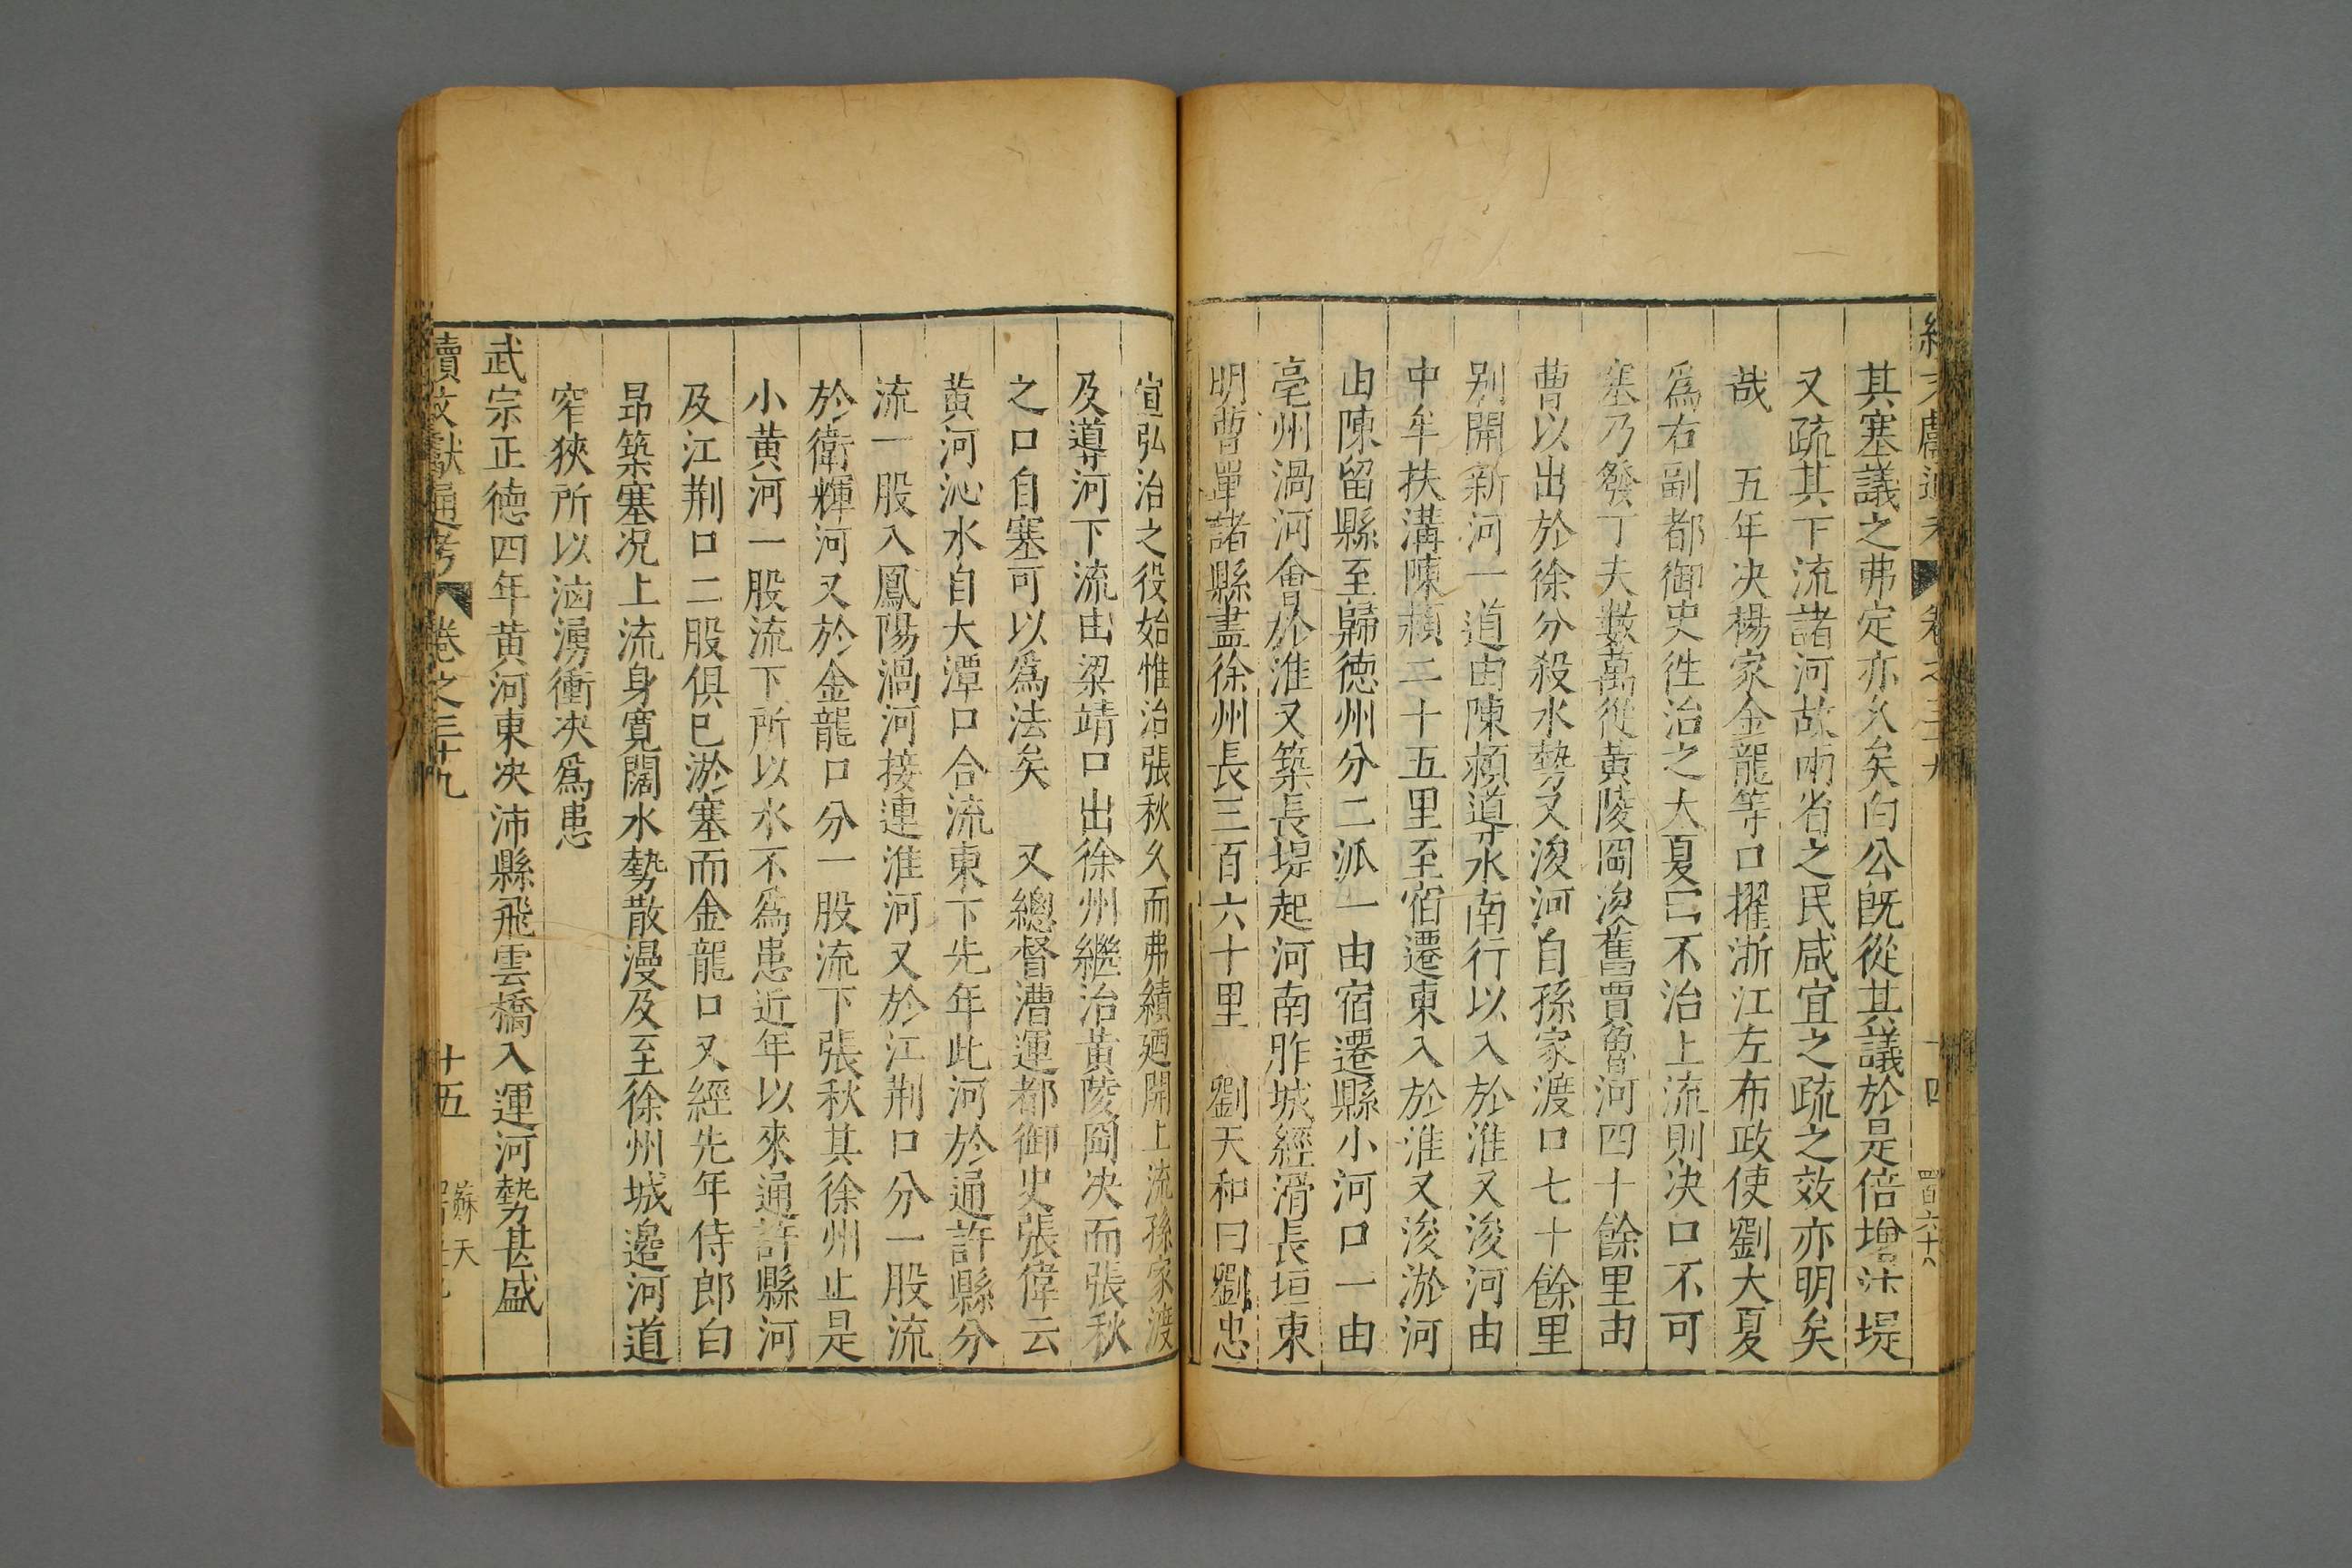 其塞議之弗定亦久矣白公既從其議於是倍增汴堤
又疏其下流諸河故兩省之民咸宜之疏之效亦明矣
哉　五年決楊家金龍等口擢浙江左布政使劉大夏
爲右副都御史徃治之大夏曰不治上流則決口不可
塞乃發丁夫數萬從黃陵岡浚舊賈魯河四十餘里由
曹以出於徐分殺水勢又浚河自孫家渡口七十餘里
別開新河一道由陳頴導水南行以入於淮又浚河由
中牟扶溝陳頴二十五里至宿遷東入於淮又浚淤河
由陳留縣至歸德州分二派一由宿遷縣小河口一由
亳州渦河會於淮又築長堤起河南胙城經滑長垣東
明曹單諸縣盡徐州長三百六十里　劉天和曰劉忠
宣弘治之役始惟治張秋久而弗績廼開上流孫家渡
及導河下流由梁靖口出徐州繼治黃陵岡決而張秋
之口自塞可以爲法矣　又總督漕運都御史張偉云
黃河沁水自大潭口合流東下先年此河於通許縣分
流一股入鳳陽渦河接連淮河又於江荆口分一股流
於衛輝河又於金龍口分一股流下張秋其徐州止是
小黃河一股流下所以水不爲患近年以來通許縣河
及江荆口二股俱已淤塞而金龍口又經先年侍郎白
昂築塞况上流身寬闊水勢散漫及至徐州城邊河道
窄狹所以洶湧衝決爲患
武宗正德四年黃河東決沛縣飛雲橋入運河勢甚盛
續文獻通考　卷之三十九　十五　蘇天